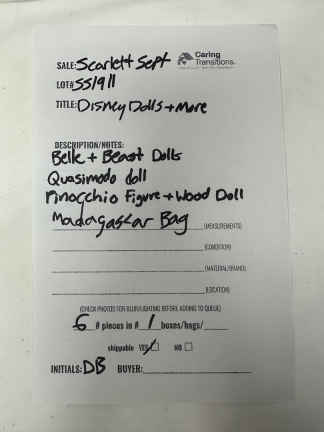 SALE: Scarlett Sept
Caring Transitions
LOT# SS1911
TITLE: Disney Dolls + More
DESCRIPTION/NOTES:
Belle + Beast Dolls
Quasimodo doll
Pinocchio Figure + Wood Doll
Madagascar Bag (MEASUREMENTS)
(CONDITION)
(MATERIAL/BRAND)
(LOCATION)
(CHECK PHOTOS FOR BLUR/LIGHTING BEFORE ADDING TO QUEUE)
6 # pieces in # 1 boxes/bags/
shippable YES NO
INITIALS: DB BUYER: